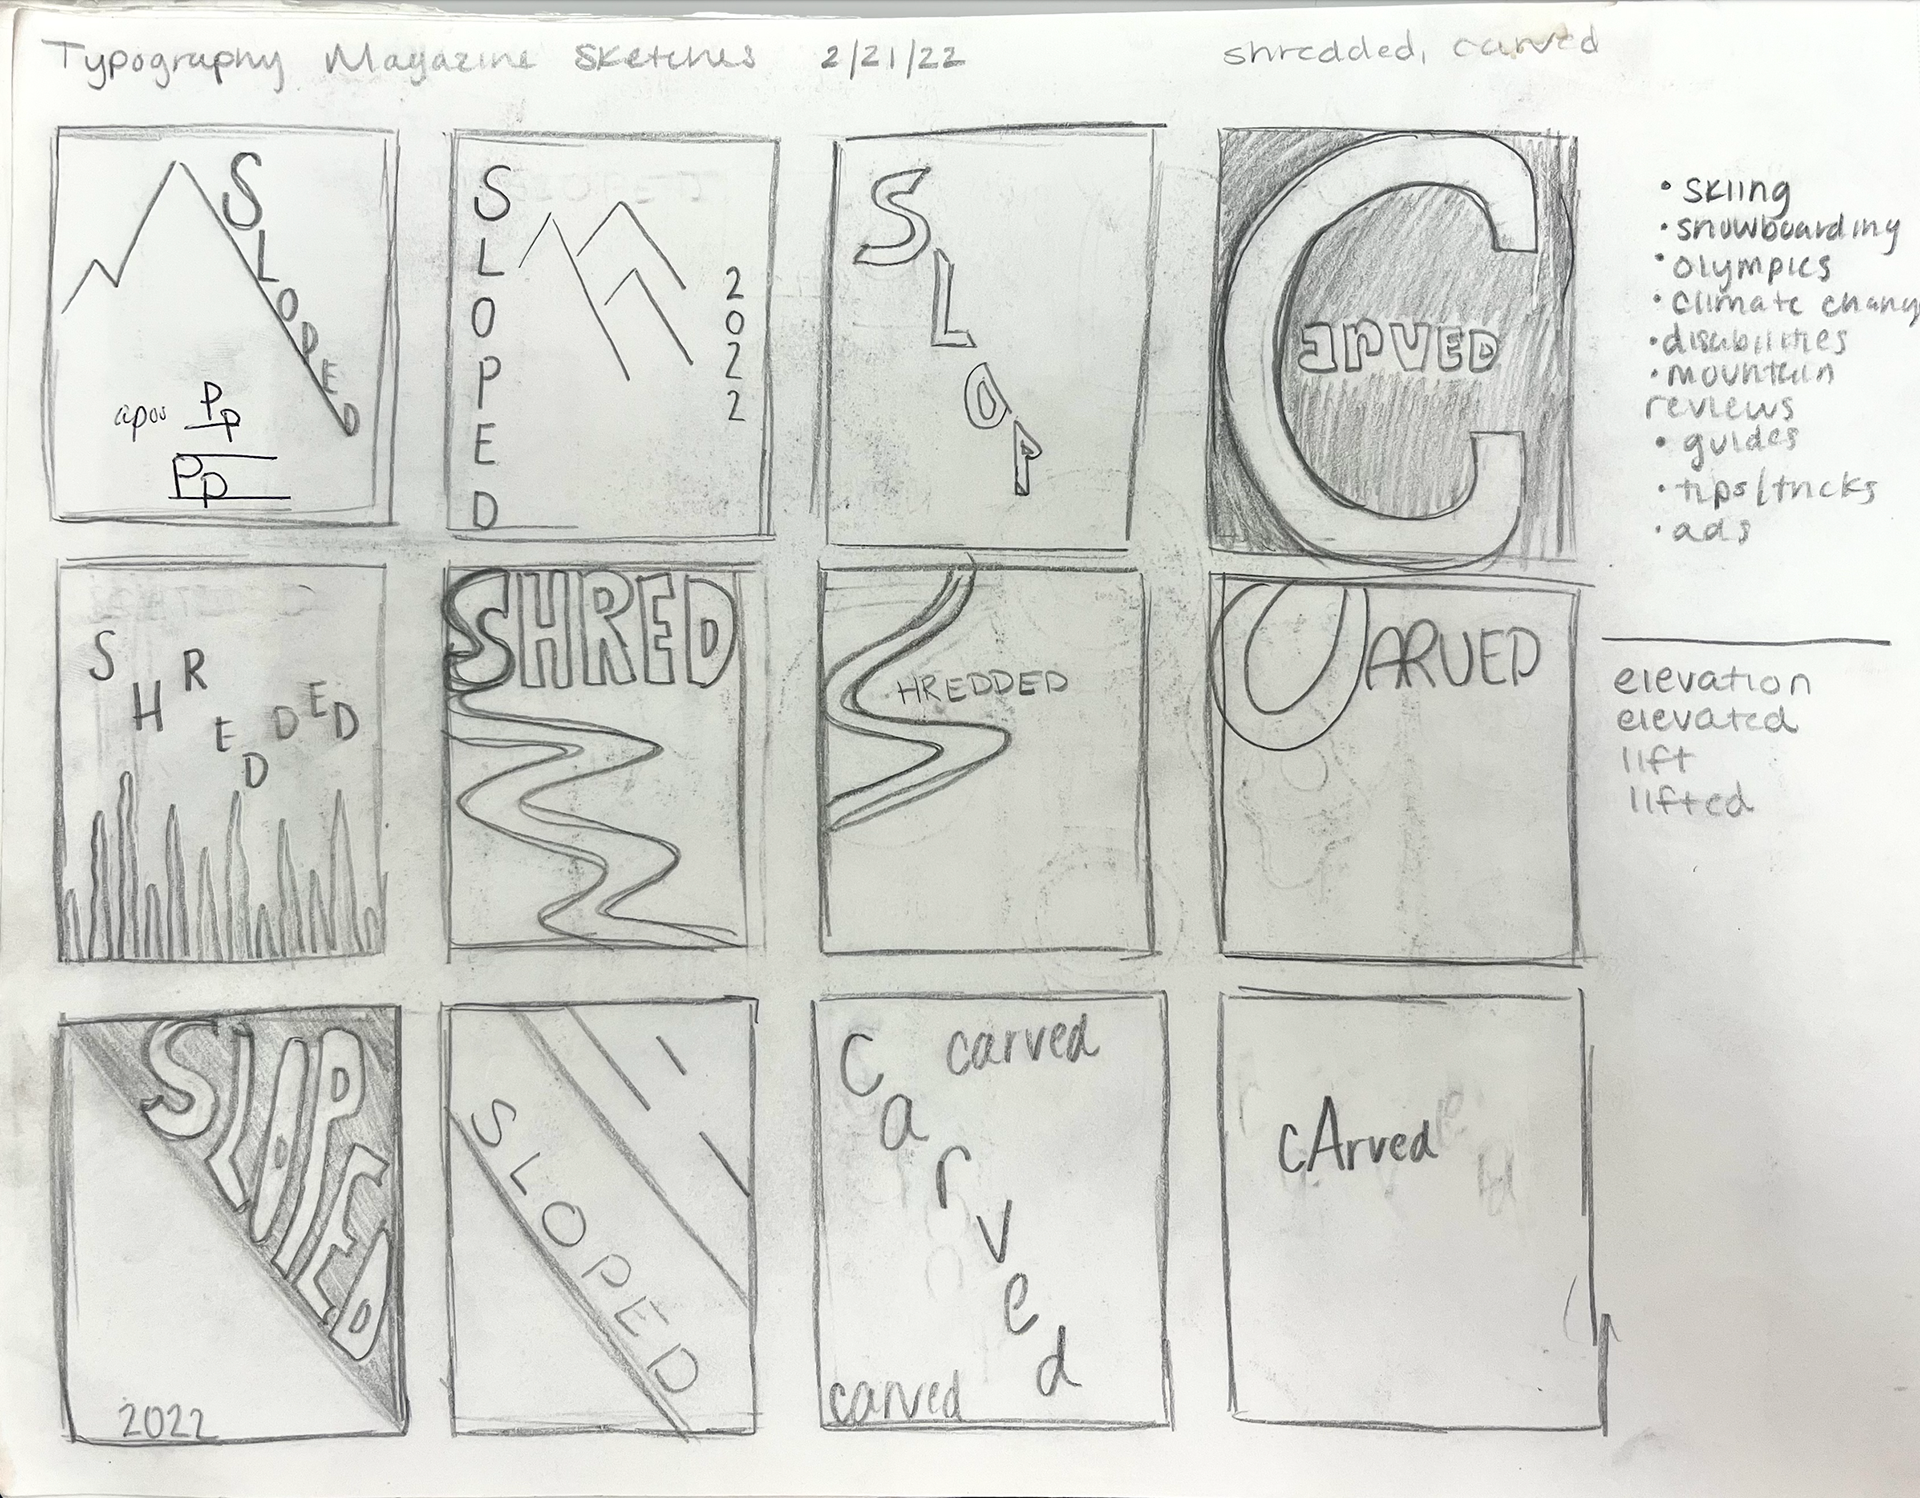 Typography Magazine Sketches 2/21/22
shredded, carved
SLOPED
apos Pp
Pp
SLOPED
2022
SLOP
CARVED
• skiing
• snowboarding
• olympics
• climate chang
• disabilities
• mountain
reviews
• guides
• tips/tricks
• ads
SHREDDED
SHRED
SHREDDED
CARVED
elevation
elevated
lift
lifted
SLOPED
2022
SLOPED
carved
Carved
carved
cArved